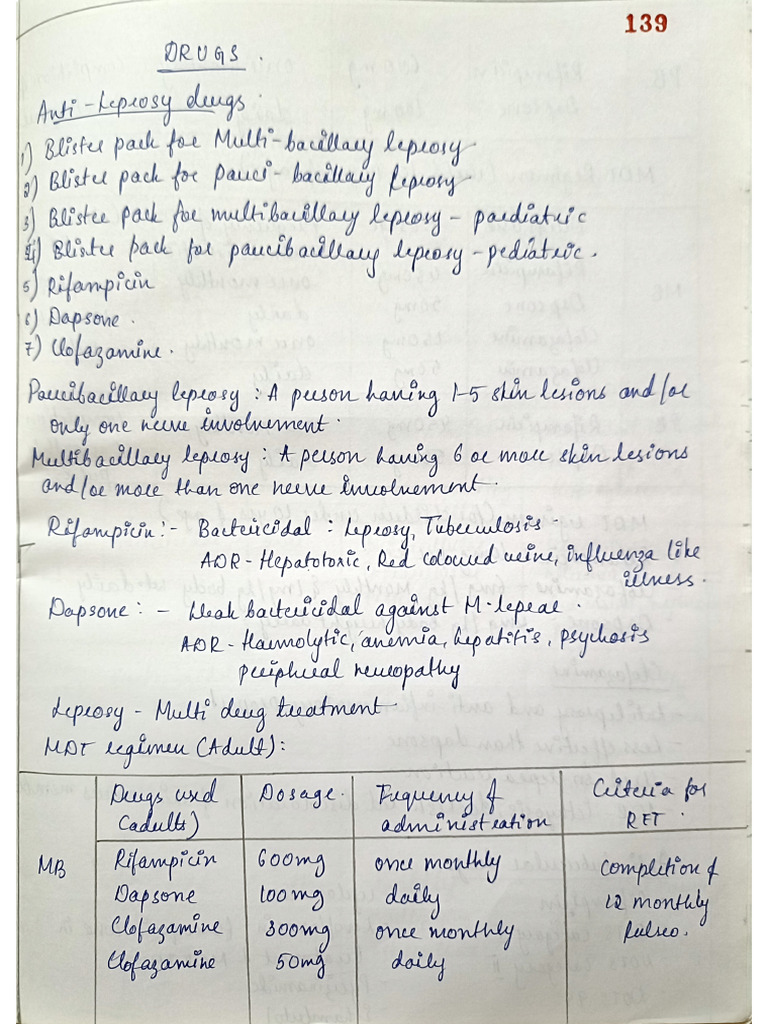 139
DRUGS.
Anti-Leprosy drugs.
1) Blister pack for Multi-bacillary leprosy
2) Blister pack for pauci-bacillary leprosy
3) Blister pack for multibacillary leprosy - paediatric
4) Blister pack for paucibacillary leprosy - pediatric.
5) Rifampicin
6) Dapsone.
7) Clofazamine.
Paucibacillary leprosy : A person having 1-5 skin lesions and/or
only one nerve involvement.
Multibacillary leprosy : A person having 6 or more skin lesions
and/or more than one nerve involvement.
Rifampicin :- Bactericidal : Leprosy, Tuberculosis.
ADR - Hepatotoxic, Red coloured urine, influenza like
illness.
Dapsone :- Weak bactericidal against M. leprae.
ADR - Haemolytic, anemia, hepatitis, psychosis
peripheral neuropathy
Leprosy - Multi drug treatment.
MDT regimen (Adult):
Drugs used (adults) Dosage. Frequency of administration Criteria for RFT.
MB Rifampicin 600mg once monthly completion of
Dapsone 100mg daily 12 monthly
Clofazamine 300mg once monthly pulses.
Clofazamine 50mg daily